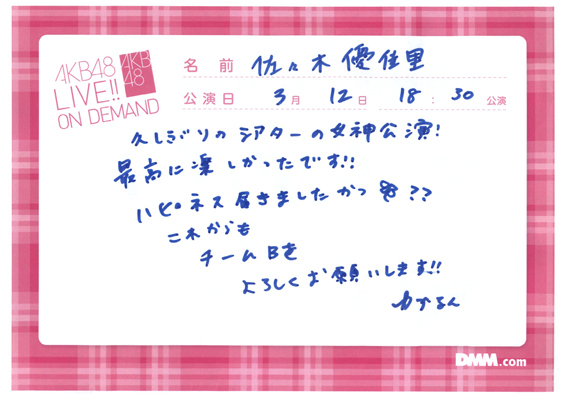 AKB48
LIVE!!
ON DEMAND
AKB
48
名前 佐々木優佳里
公演日 3月 12日 18:30 公演
久しぶりのシアターの女神公演!
最高に楽しかったです!!
ハピネス届きましたかっ??
これからも
チームBを
よろしくお願いします!!
ゆかるん
DMM.com